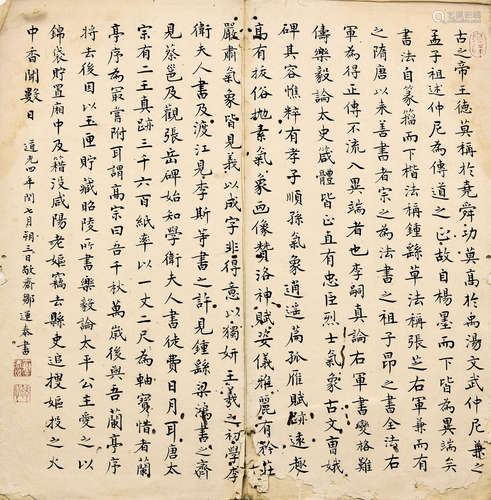 古之帝王德莫稱於堯舜功莫高於禹湯文武仲尼兼之
孟子祖述仲尼為傳道之正故自楊墨而下皆為異端矣
書法自篆籀而下楷法稱鍾繇草法稱張芝右軍兼而有
之隋唐以來善書者宗之為法書之祖子昂之書全法右
軍為得正傳不流入異端者也李嗣真論右軍書變格難
儔樂毅論太史箴體皆正直有忠臣烈士氣象古文曹娥
碑其容憔瘁有孝子順孫氣象逍遙篇孤雁賦跡遠趣
高有拔俗抱素氣象畫像贊洛神賦姿儀雅麗有矜莊
嚴肅氣象皆見義以成字非得意以獨妍王羲之初學李
衛夫人書及渡江見李斯等書之許見鍾繇梁鴻書之齊
見蔡邕及觀張岳碑始知學衛夫人書徒費日月耳唐太
宗有二王真跡三千六百紙率以一丈二尺為軸寶惜者蘭
亭序為最嘗附耳謂高宗曰吾千秋萬歲後與吾蘭亭序
將去後因以玉匣貯藏昭陵所書樂毅論太平公主愛之以
錦袋貯置廂中及籍沒咸陽老嫗竊去縣吏追搜嫗投之火
中香聞數日
道光四年閏七月朔三日敬齋鄒運泰書